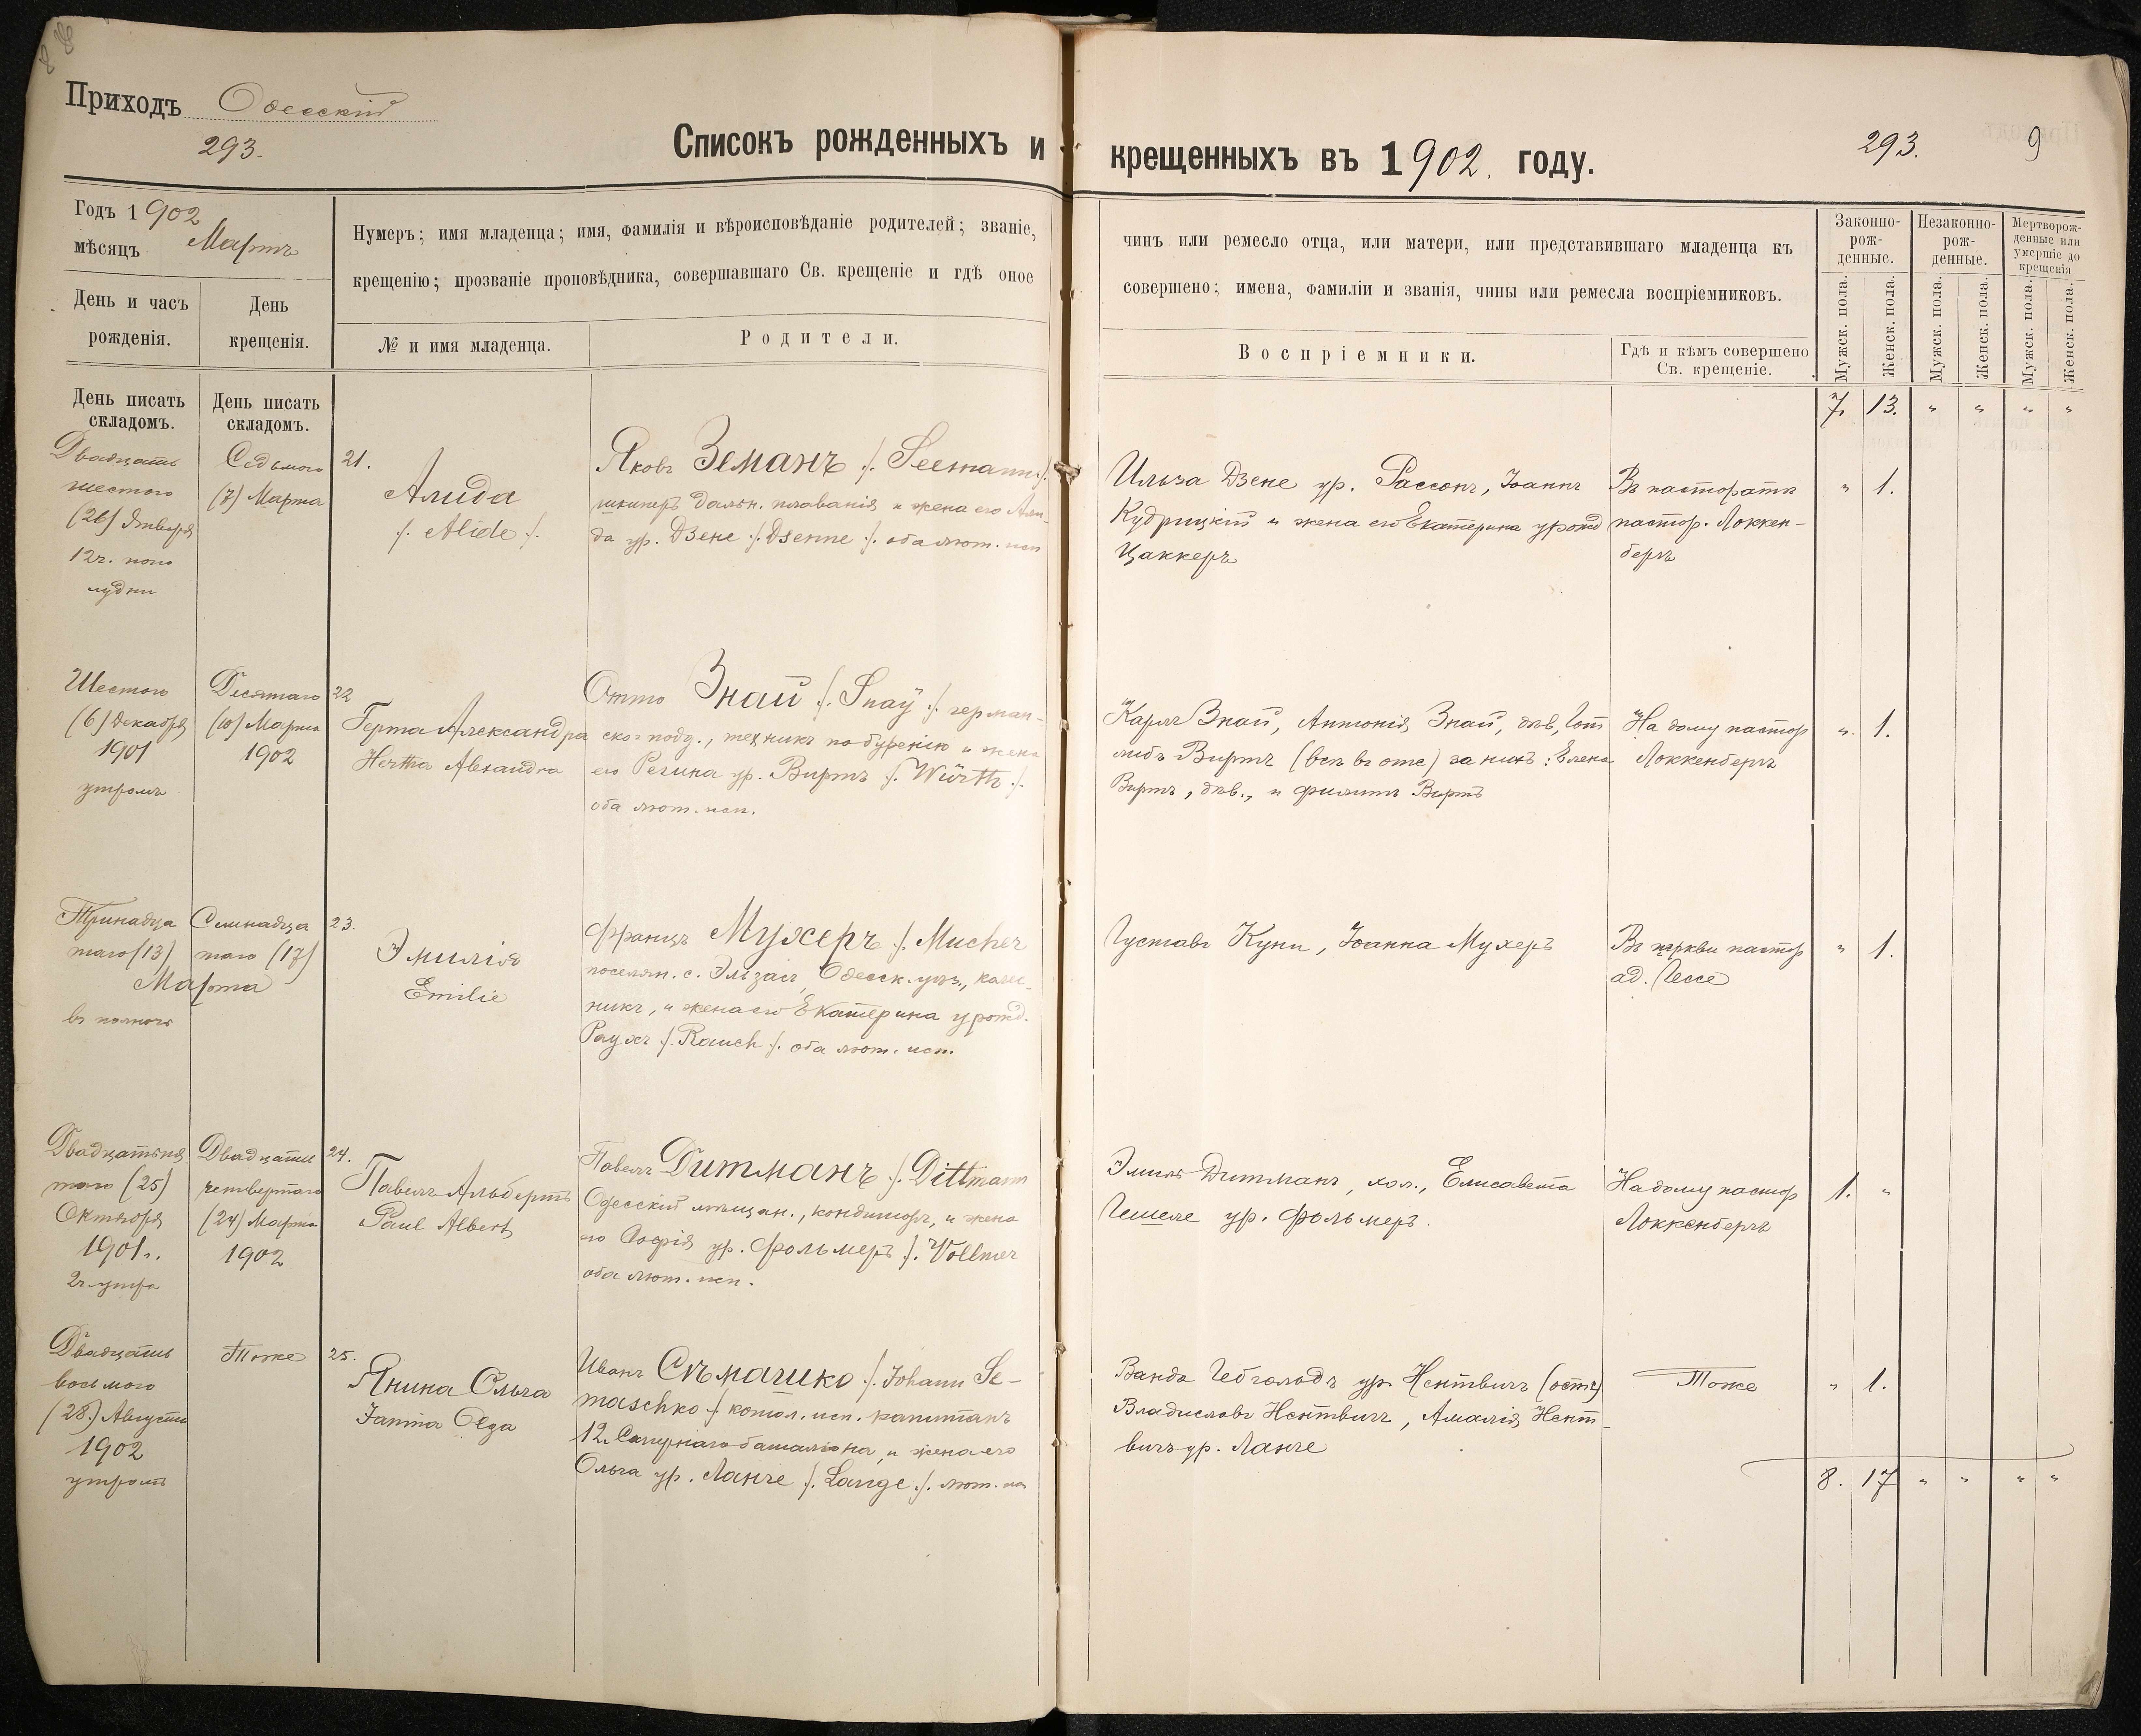 Приходъ Одесскій
293.
Списокъ рожденныхъ и крещенныхъ въ 1902. году.
293. 9
Годъ 1902
мѣсяцъ Мартъ
День и часъ
рожденія.
День
крещенія.
Нумеръ; имя младенца; имя, фамилія и вѣроисповѣданіе родителей; званіе,
крещенію; прозваніе проповѣдника, совершавшаго Св. крещеніе и гдѣ оное
№ и имя младенца.
Родители.
чинъ или ремесло отца, или матери, или представившаго младенца къ
совершено; имена, фамиліи и званія, чины или ремесла воспріемниковъ.
Воспріемники.
Гдѣ и кѣмъ совершено
Св. крещеніе.
Законно-
рож-
денные.
Незаконно-
рож-
денные.
Мертворож-
денные или
умершіе до
крещенія
Мужск. пола.
Женск. пола.
Мужск. пола.
Женск. пола.
Мужск. пола.
Женск. пола.
День писать
складомъ.
День писать
складомъ.
7. 13. " " " "
Двадцать
шестого
(26) Января
12ч. попо
лудни
Седьмого
(7) Марта
21.
Алида
/. Alide /.
Яковъ Земанъ /. Seemann /.
шкиперъ дальн. плаванія и жена его Али-
да ур. Дзене /. Dsenne /. оба лют. исп
Ильза Дзене ур. Рассонъ, Іоаннъ
Кудрицкій и жена его Екатерина урожд
Цаккеръ
Въ пасторатѣ
пастор. Локкен-
бергъ
" 1.
Шестого
(6) Декабря
1901
утромъ
Десятаго
(10) Марта
1902
22
Герта Александра
Hertha Alexandra
Отто Знай /. Snaÿ /. герман-
ско подд., техникъ по буренію и жена
его Регина ур. Виртъ /. Würth /.
оба лют. исп.
Карлъ Знай, Антонія Знай, дѣв, Гот
либъ Виртъ (всѣ въ отс) за нихъ: Елена
Виртъ, дѣв., и Филиппъ Виртъ
На дому пастор
Локкенбергъ
" 1.
Тринадца
таго (13)
Семнадца
таго (17)
Марта
въ полночь
23.
Эмилія
Emilie
Францъ Мухеръ /. Mucher
поселян. с. Эльзасъ, Одесск. уѣз.,
никъ, и жена его Екатерина урожд.
Раухъ /. Rauch /. оба лют. исп.
Густавъ Кунъ, Іоанна Мухеръ
Въ церкви пастор
ад. Гессе
" 1.
Двадцатьпя
таго (25)
Октября
1901г.
2ч. утра
Двадцать
четвертаго
(24) Марта
1902
24.
Павелъ Альбертъ
Paul Albert
Павелъ Дитманъ /. Dittmann
Одесскій мѣщан., кондиторъ, и жена
его Софія ур. Фольмеръ /. Vollmer
оба лют. исп.
Эмиль Дитманъ, хол., Елисавета
Гешеле ур. Фольмеръ.
На дому пастор
Локкенбергъ
1. "
Двадцать
восьмого
(28.) Августа
1902
утромъ
Тоже
25.
Янина Ольга
Janina Olga
Иванъ Сѣмашко /. Johann Se-
maschko /. катол. исп. капитанъ
12 Сапернаго баталіона, и жена его
Ольга ур. Ланге /. Lange /. лют. исп
Ванда Гебгольдъ ур. Нентвигъ
Владиславъ Нентвигъ, Амалія Нент-
вигъ ур. Ланге
Тоже
" 1.
8. 17 " " " "